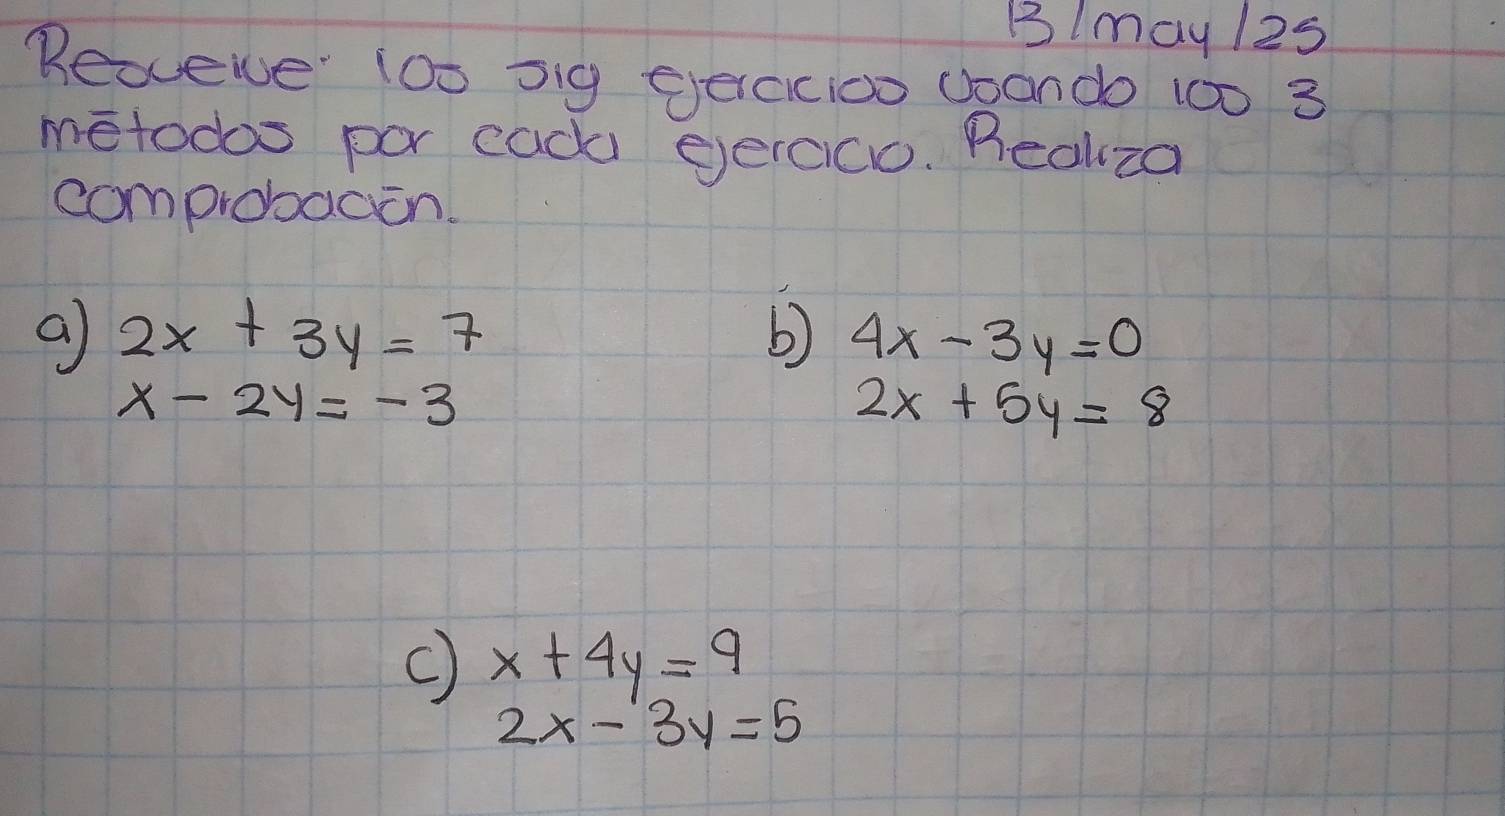 13/may/25
Resuelve los sig ejercicios usando los 3
métodos por cada ejercicio. Realiza
comprobación.
a) 2x + 3y = 7
x - 2y = -3
b) 4x - 3y = 0
2x + 5y = 8
c) x + 4y = 9
2x - 3y = 5